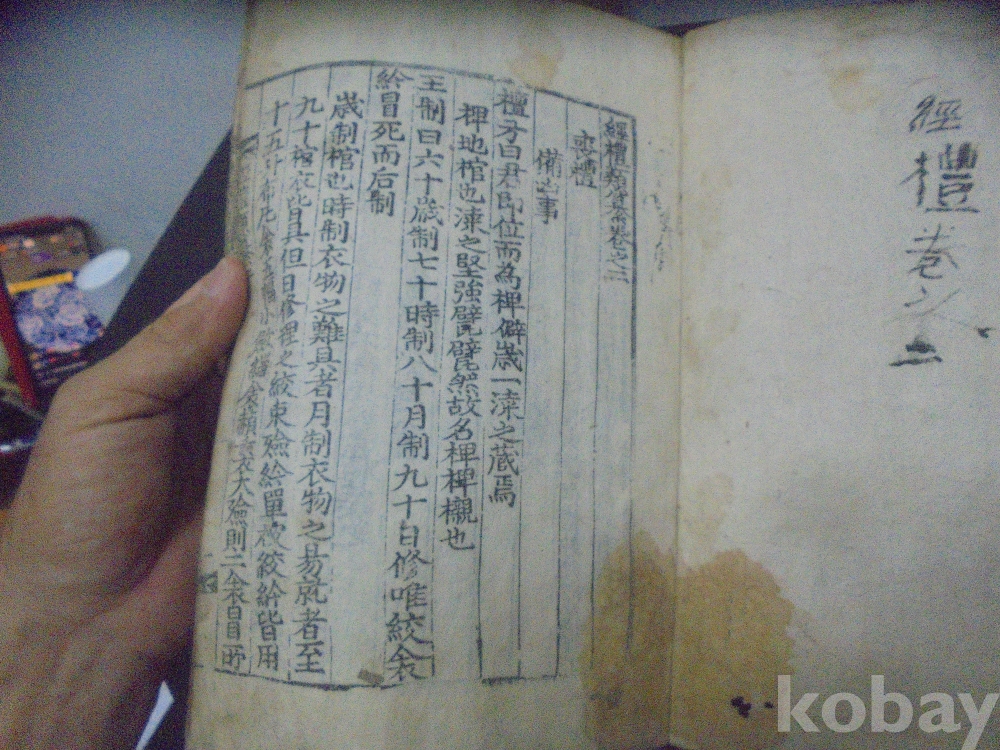 經禮卷之二
經禮類纂卷之二
喪禮
備凶事
檀弓曰君即位而為椑歲一漆之藏焉
椑地棺也漆之堅強甓甓然故名椑椑櫬也
王制曰六十歲制七十時制八十月制九十日修唯絞衾
紟冒死而后制
歲制棺也時制衣物之難具者月制衣物之易就者至
九十棺衣皆具但日修理之絞束殮紟單被絞紟皆用
十五升布 小斂 衣大殮則二衾冒所
kobay